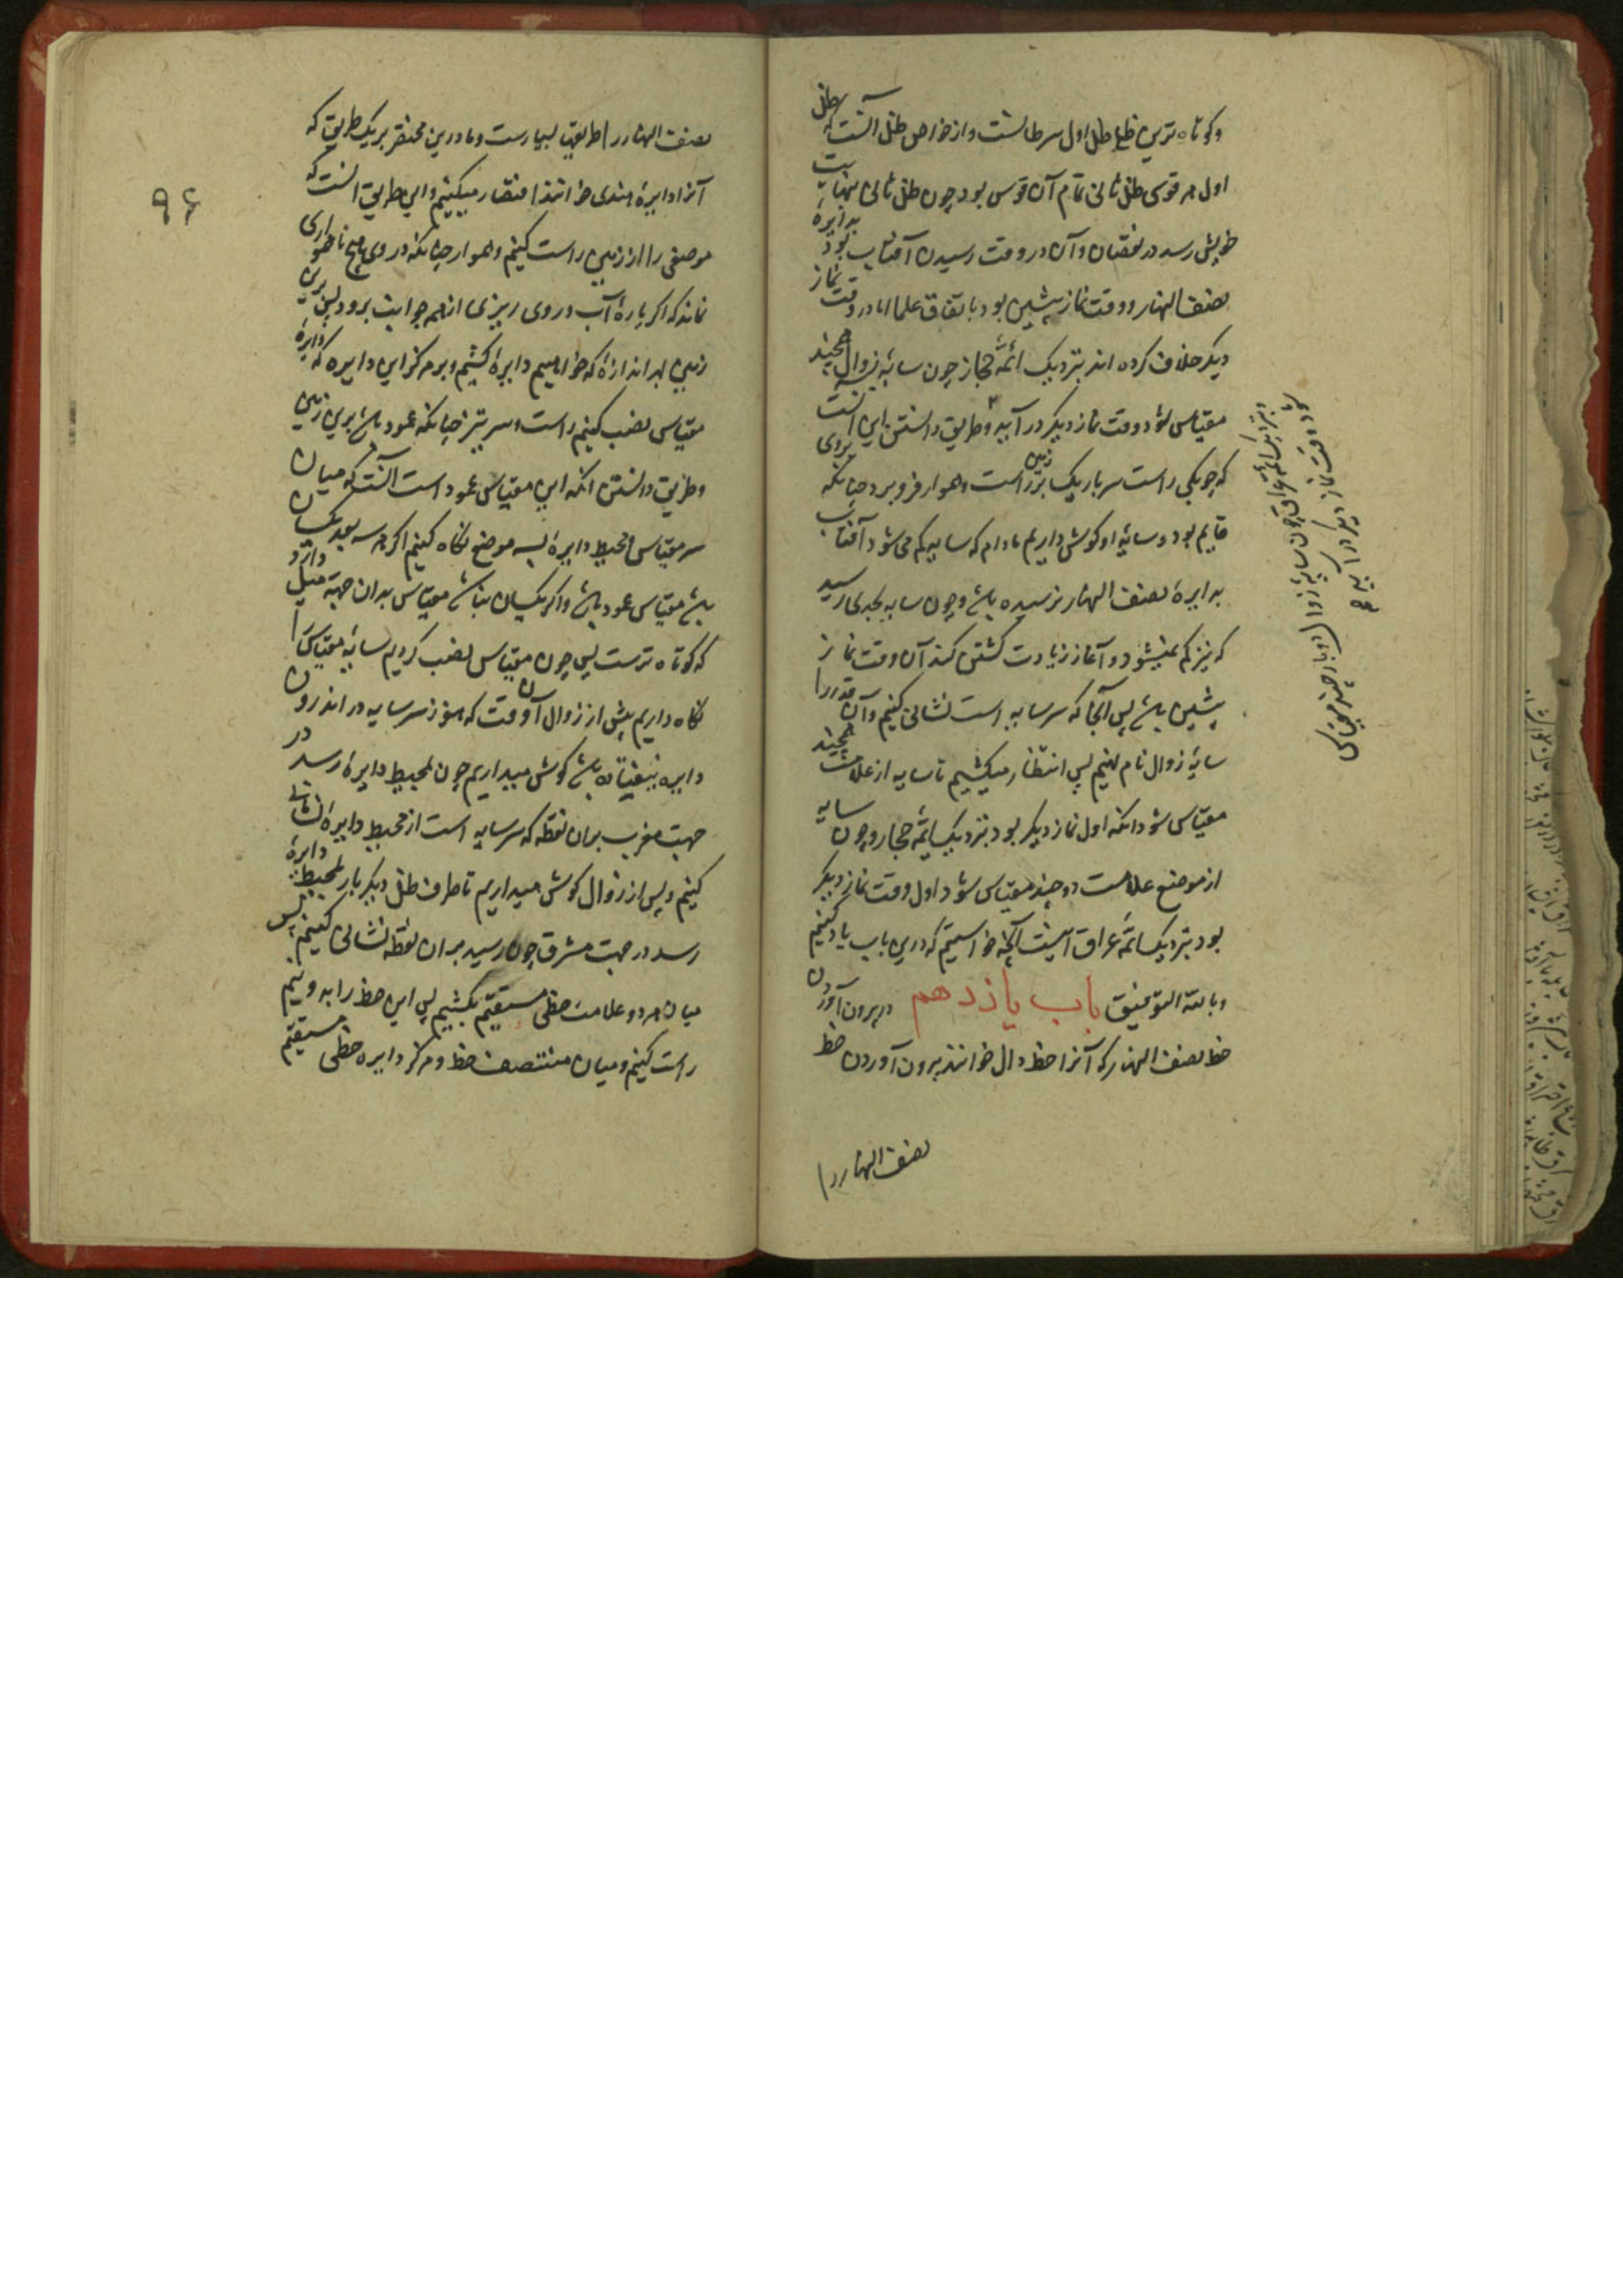 وکوتاه ترین ظل ظل اول سرطانست و از خواص ظل آنست که ظل
اول هر قوسی ظل ثانی تمام آن قوس بود چون ظل ثانی بنهایت
خویش رسد در نقصان و آن در وقت رسیدن آفتاب بود بدایرهٔ
نصف النهار و وقت نماز پیشین بود باتفاق علما اما در وقت نماز
دیکر خلاف کرده اند بنزدیک ائمهٔ حجاز چون سایهٔ زوال همچند
مقیاس شود وقت نماز دیکر در آید و طریق دانستن این آنست
که چوبکی راست سر باریک بر زمین راست و هموار فرو برد چنانکه
قایم بود و سایهٔ او کوش داریم مادام که سایه کم می شود آفتاب
بدایرهٔ نصف النهار نرسیده باشد و چون سایه بجدی رسید
که نیز کم نمیشود و آغاز زیادت کشتن کند آن وقت نماز
پیشین باشد پس آنجا که سر سایه است نشانی کنیم و آن قدر را
سایهٔ زوال نام نهیم پس انتظار میکشیم تا سایه از علامت همچند
مقیاس شود انکه اول نماز دیکر بود بنزدیک ائمهٔ حجاز و چون سایه
از موضع علامت دو چند مقیاس شود اول وقت نماز دیکر
بود بنزدیک ائمهٔ عراق اینست آنچه خواستیم که درین باب یاد کنیم
وبالله التوفیق باب یازدهم در برون آوردن
خط نصف النهار که آنرا خط زوال خوانند برون آوردن خط
نصف النهار را
وبنزدیک ائمهٔ عراق چون سایهٔ زوال دوبار چند مقیاس
شود وقت نماز دیکر در آید
۹۶
نصف النهار را طریقها بسیارست و ما درین مختصر بر یک طریق که
آنرا دایرهٔ هندی خوانند اختصار میکنیم و این طریق آنست که
موضعی را از زمین راست کنیم و هموار چنانکه در وی هیچ ناهمواری
نماند که اکر پارهٔ آب در وی ریزی از همه جوانب برود پس برین
زمین بهر اندازهٔ که خواهیم دایرهٔ کشیم و بر مرکز این دایره که دایرهٔ
مقیاس نصب کنیم راست و سر تیز چنانکه عمود باشد برین زمین
و طریق دانستن انکه این مقیاس عمود است آنست که میان
سر مقیاس و محیط دایره بسه موضع نکاه کنیم اکر هر سه بعد یکسان
باشد مقیاس عمود باشد و اکر یکسان نباشد مقیاس بدان جهة میل دارد
که کوتاه ترست پس چون مقیاس نصب کردیم سایهٔ مقیاس را
نکاه داریم پیش از زوال آن وقت که هنوز سر سایه در اندرون
دایره نیفتاده باشد کوش میداریم چون بمحیط دایره رسد در
جهت مغرب بران نقطه که سر سایه است از محیط دایره نشانی
کنیم و پس از زوال کوش میداریم تا طرف ظل دیکر بار بمحیط دایره
رسد در جهت مشرق چون رسید بران نقطه نشانی کنیم پس
میان هر دو علامت خطی مستقیم بکشیم پس این خط را بدو نیم
راست کنیم و میان منتصف خط و مرکز دایره خطی مستقیم